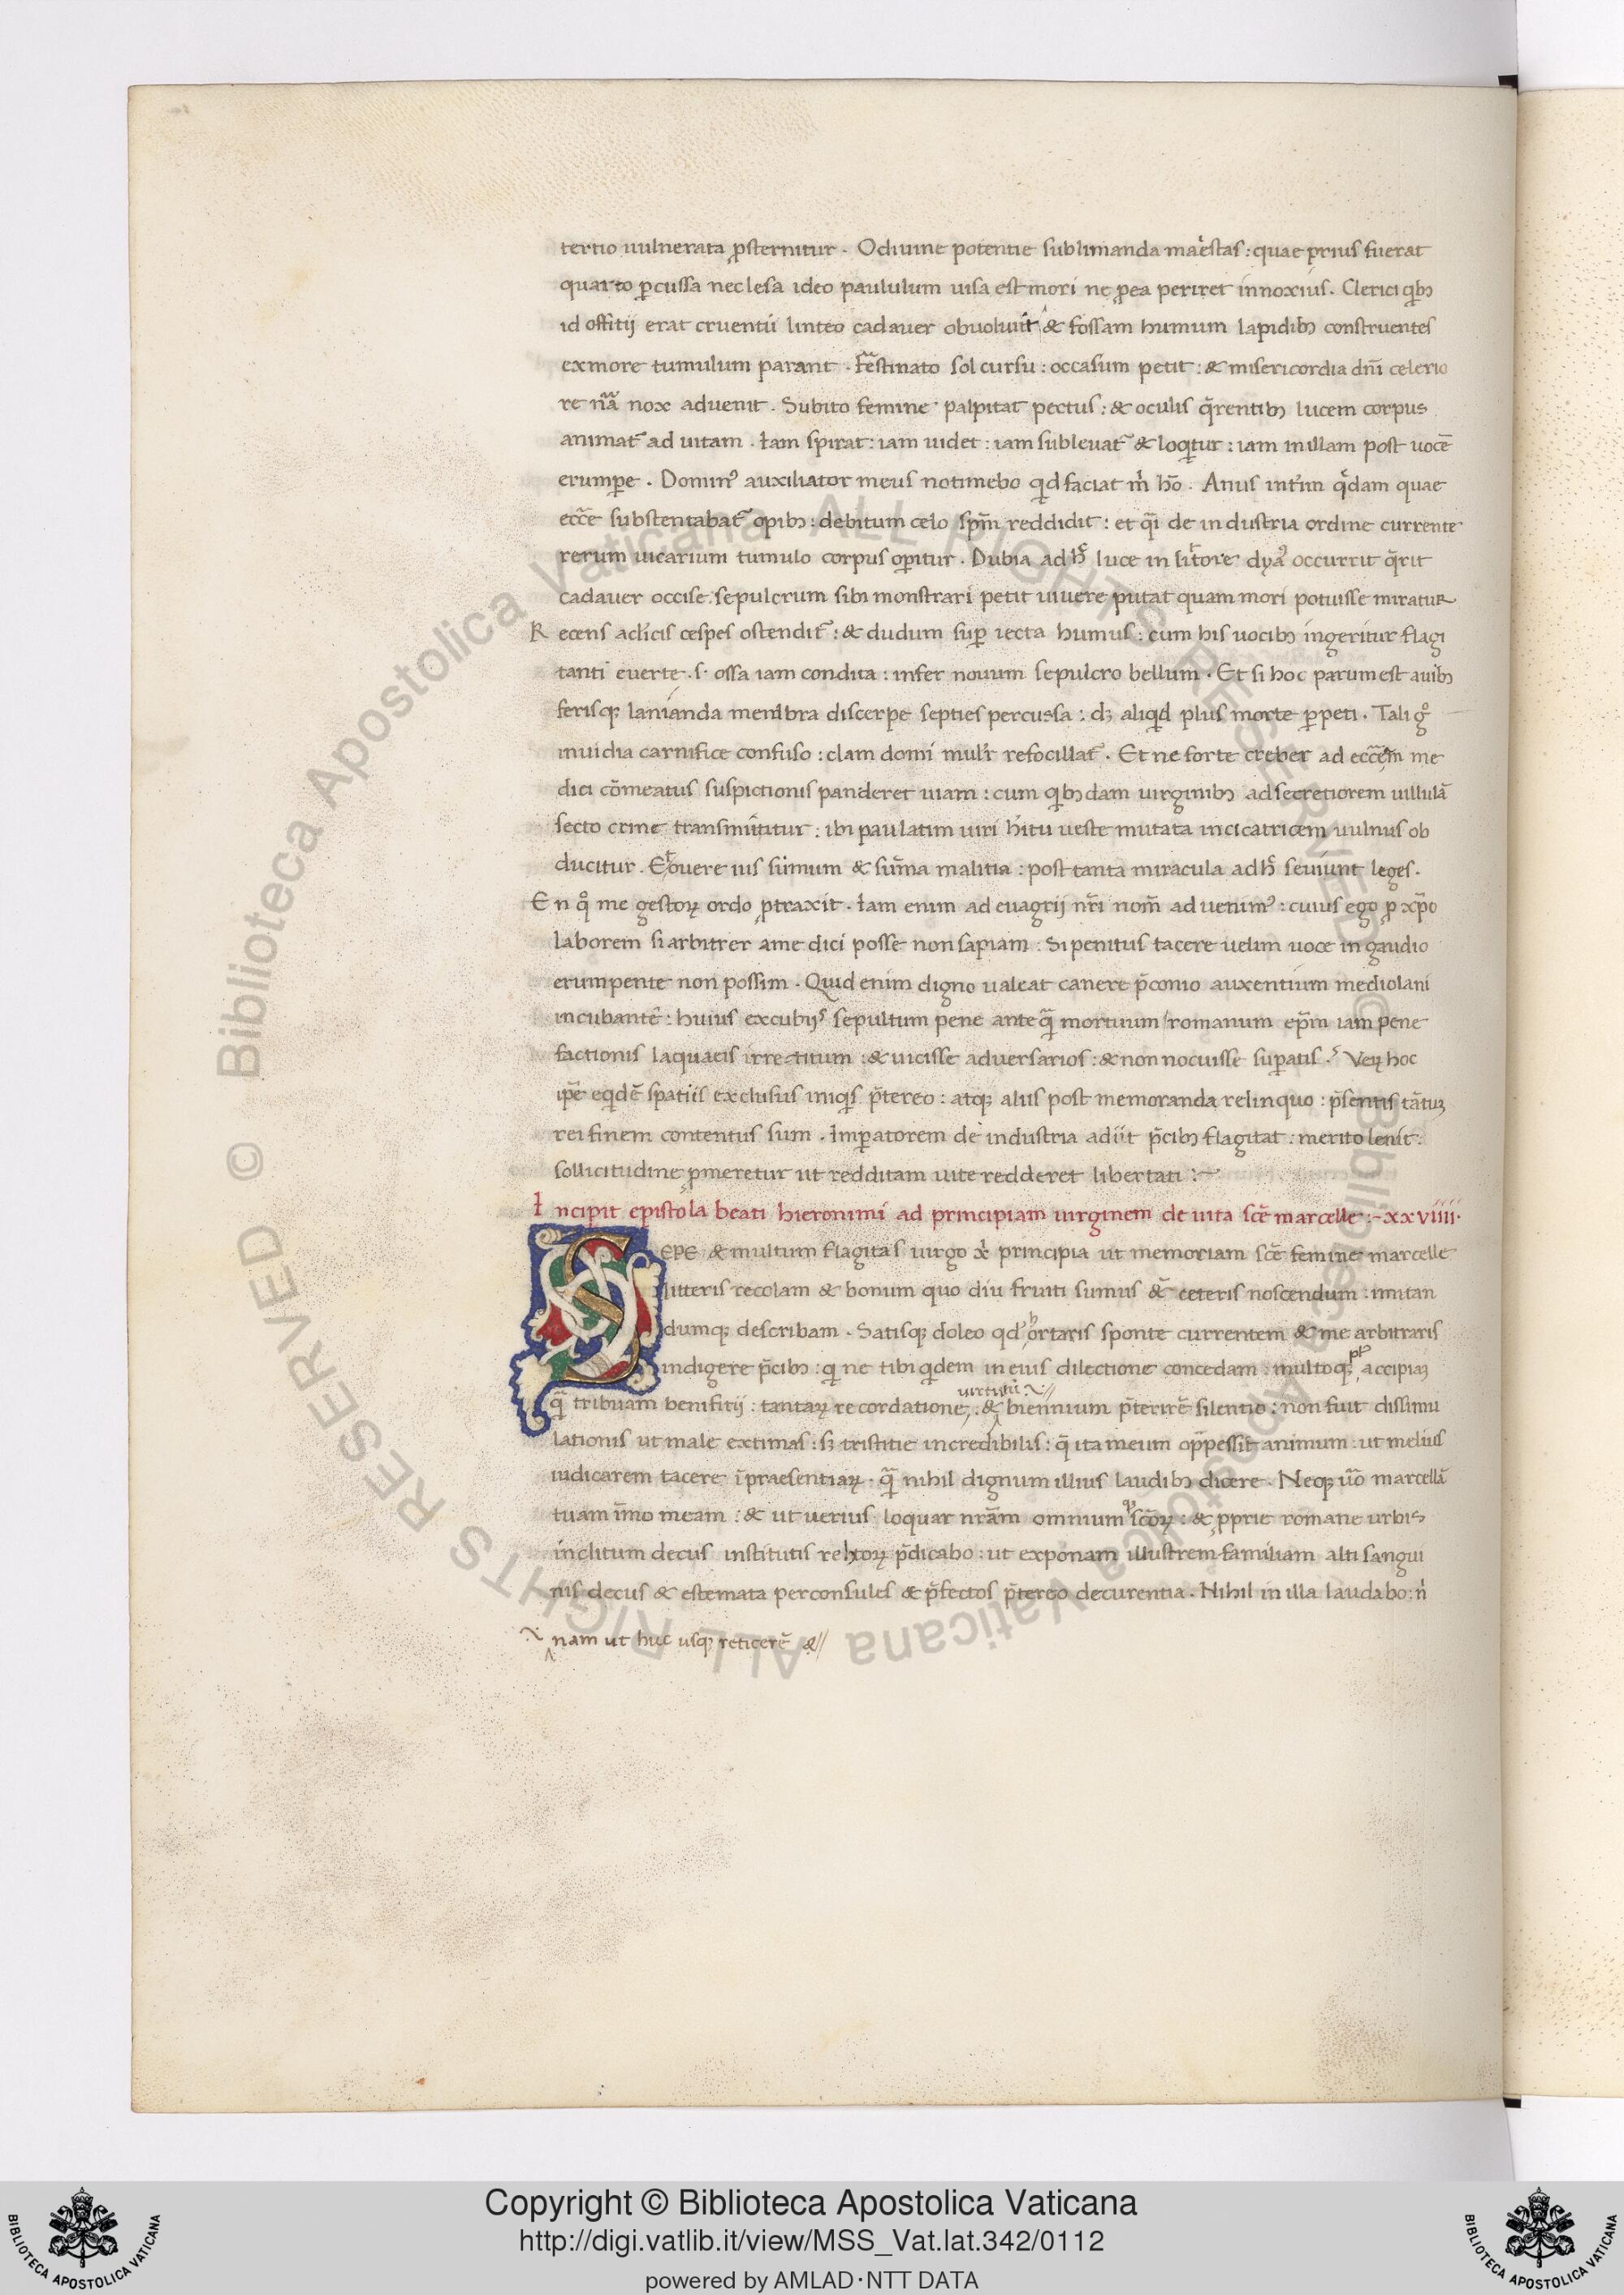 tertio uulnerata ꝓsternitur . O diuine potentie sublimanda maiestas : quae prius fuerat
quarto ꝑcussa nec lesa ideo paululum uisa est mori ne ꝓ ea periret innoxius . Clerici qͥbꝫ
id offitij erat cruentũ linteo cadauer obuoluũt & fossam humum lapidibꝫ construentes
ex more tumulum parant . Festinato sol cursu : occasum petit : & misericordia dnĩ celerio
re nr̃ã nox aduenit . Subito femine palpitat pectus : & oculis q̃rentibꝫ lucem corpus
animat᷑ ad uitam . Iam spirat : iam uidet : iam subleuat᷑ & loqͥtur : iam in illam post uocẽ
erumꝑe . Dominꝰ auxiliator meus nō timebo qͥd faciat m̍ hõ . Anus int̍im qͣdam quae
ecc̃e substentabat᷑ opibꝫ : debitum celo spm̃ reddidit : et qͣi de industria ordine currente
rerum uicarium tumulo corpus oꝑitur . Dubia adhͨ luce in litore dyaꝰ occurrit q̃rit
cadauer occise sepulcrum sibi monstrari petit uiuere putat quam mori potuisse miratur
Recens aclicis cespes ostendit᷑ : & dudum suꝑ iecta humus : cum his uocibꝫ ingeritur flagi
tanti euerte .s. ossa iam condita : infer nouum sepulcro bellum . Et si hoc parum est auibꝫ
ferisqꝫ lanianda membra discerpe septies percussa : dꝫ aliqͥd plus morte ꝑpeti . Tali gͦ
inuidia carnifice confuso : clam domi mulr̍ refocillat᷑ . Et ne forte creber ad ecc̃em me
dici cõmeatus suspictionis panderet uiam : cum qͥbꝫdam uirginibꝫ ad secretiorem uillulã
secto crine transmittitur : ibi paulatim uiri h̍itu ueste mutata in cicatricem uulnus ob
ducitur . Et o uere ius sũmum & sum̃a malitia : post tanta miracula adhͨ seuiunt leges .
En qͦ me gestoꝝ ordo ꝓtraxit . Iam enim ad euagrij nr̃i nom̃ aduenimꝰ : cuius ego ꝓ xp̃o
laborem si arbitrer a me dici posse non sapiam : Si penitus tacere uelim uoce in gaudio
erumpente non possim . Quid enim digno ualeat canere p̃conio auxentium mediolani
incubantẽ : huius excubijs sepultum pene ante qͣ̃ mortuum / romanum ep̃m iam pene
factionis laqueis irretitum : & uicisse aduersarios : & non nocuisse suꝑatis . Veꝝ hoc
ip̃e eqͥdẽ spatiis exclusus iniqͥs p̃tereo : atqꝫ aliis post memoranda relinquo : p̃sentis tãtuꝫ
rei finem contentus sum . Imꝑatorem de industria adiit p̃cibꝫ flagitat : merito lenit :
sollicitudine ꝓmeretur ut redditam uite redderet libertati :~
Incipit epistola beati hieronimi ad principiam uirginem de uita scẽ marcelle :- xxviiii .
SEPE & multum flagitas uirgo x̍ principia ut memoriam scẽ femine marcelle
litteris recolam & bonum quo diu fruiti sumus & ceteris noscendum : imitan
dumqꝫ describam . Satisqꝫ doleo qd̍ hortaris sponte currentem & me arbitraris
indigere p̃cibꝫ : qͥ ne tibi qͥdem in eius dilectione concedam : multoqꝫ plꝰ accipiaꝫ
qͣ̃ tribuam benifitij : tantaꝝ recordatione uirtutũ . & biennium p̃terirẽ silentio : non fuit dissimu
lationis ut male extimas : sꝫ tristitie incredibilis : q̃ ita meum opp̃essit animum : ut melius
iudicarem tacere ĩpraesentiaꝝ . qͣ̃ nihil dignum illius laudibꝫ dicere . Neqꝫ uͦ marcellã
tuam ĩmo meam : & ut uerius loquar nr̃am omnium qͥ scõꝝ : & ꝓprie romane urbis
inclitum decus institutis rethoꝝ p̃dicabo : ut exponam illustrem familiam alti sangui
nis decus & estemata per consules & p̃fectos p̃tereo decurentia . Nihil in illa laudabo : n̍
nam ut huc usqꝫ reticerẽ &//
© Biblioteca Apostolica Vaticana ALL RIGHTS RESERVED © Biblioteca Apostolica Vaticana ALL RIGHTS RESERVED
BIBLIOTECA APOSTOLICA VATICANA
Copyright © Biblioteca Apostolica Vaticana
http://digi.vatlib.it/view/MSS_Vat.lat.342/0112
powered by AMLAD·NTT DATA
BIBLIOTECA APOSTOLICA VATICANA